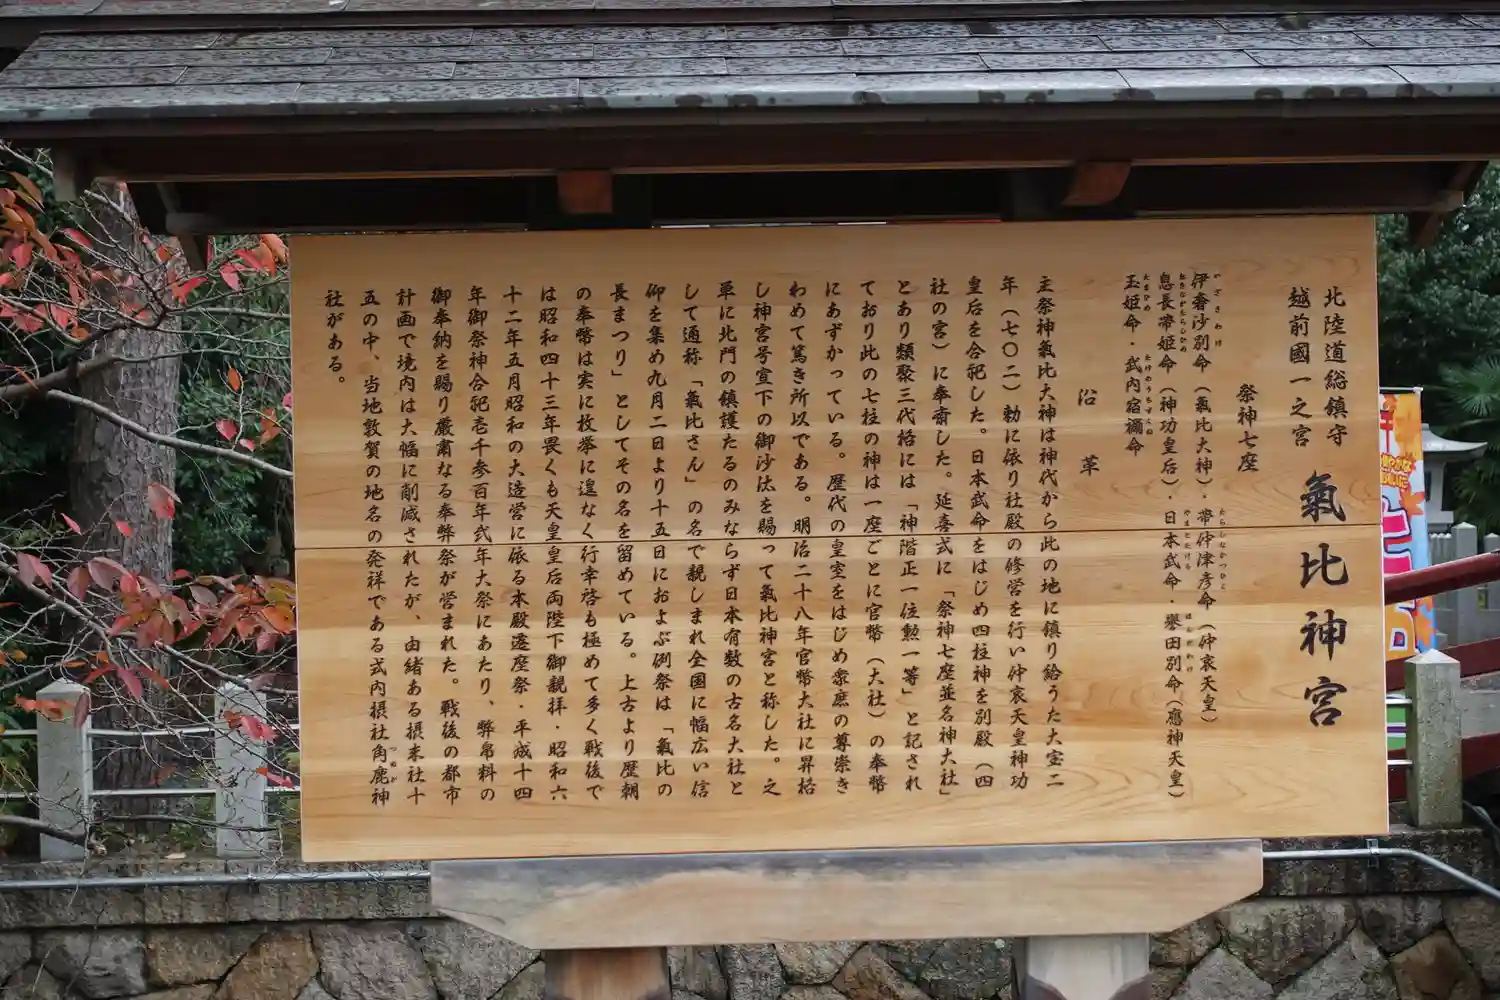 北陸道総鎮守
越前國一之宮
氣比神宮
祭神七座
伊奢沙別命（氣比大神）・帯仲津彦命（仲哀天皇）
いざさわけ
たらしなかつひこ
息長帯姫命（神功皇后）・日本武命・譽田別命（應神天皇）
おきながたらしひめ
やまとたける
ほむだわけ
玉姫命・武内宿禰命
たまひめ
たけのうちすくね
沿革
主祭神氣比大神は神代から此の地に鎮り給うた大宝二
年（七〇二）勅に依り社殿の修営を行い仲哀天皇神功
皇后を合祀した。日本武命をはじめ四柱神を別殿（四
社の宮）に奉斎した。延喜式に「祭神七座並名神大社」
とあり類聚三代格には「神階正一位勲一等」と記され
ており此の七柱の神は一座ごとに官幣（大社）の奉幣
にあずかっている。歴代の皇室をはじめ衆庶の尊崇き
わめて篤き所以である。明治二十八年官幣大社に昇格
し神宮号宣下の御沙汰を賜って氣比神宮と称した。之
単に北門の鎮護たるのみならず日本有数の古名大社と
して通称「氣比さん」の名で親しまれ全国に幅広い信
仰を集め九月二日より十五日におよぶ例祭は「氣比の
長まつり」としてその名を留めている。上古より歴朝
の奉幣は実に枚挙に遑なく行幸啓も極めて多く戦後で
は昭和四十三年畏くも天皇皇后両陛下御親拝・昭和六
十二年五月昭和の大造営に依る本殿遷座祭・平成十四
年御祭神合祀壱千参百年弐年大祭にあたり、幣帛料の
御奉納を賜り厳粛なる奉弊祭が営まれた。戦後の都市
計画で境内は大幅に削減されたが、由緒ある摂末社十
五の中、当地敦賀の地名の発祥である式内摂社角鹿神
つぬが
社がある。